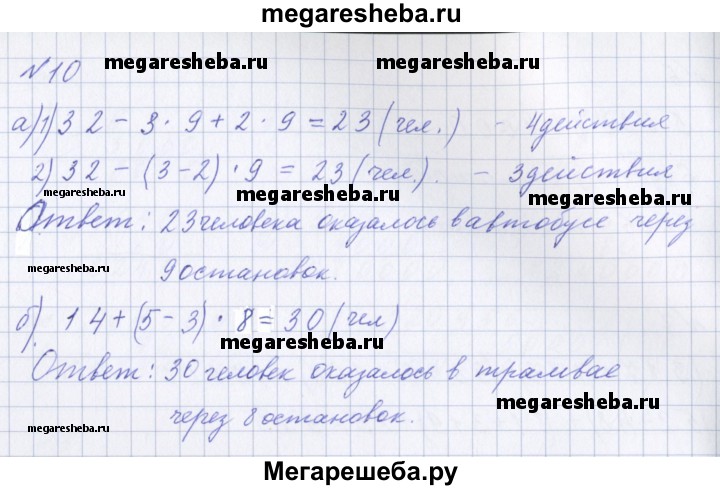 megaresheba.ru
№10
megaresheba.ru
megaresheba.ru
а) 1) 32 - 3 · 9 + 2 · 9 = 23 (чел.) - 4 действия
2) 32 - (3 - 2) · 9 = 23 (чел.). - 3 действия
megaresheba.ru
megaresheba.ru
megaresheba.ru
Ответ: 23 человека оказалось в автобусе через
megaresheba.ru
9 остановок.
б) 14 + (5 - 3) · 8 = 30 (чел)
megaresheba.ru
Ответ: 30 человек оказалось в трамвае
megaresheba.ru
через 8 остановок.
megaresheba.ru
Мегарешеба.ру